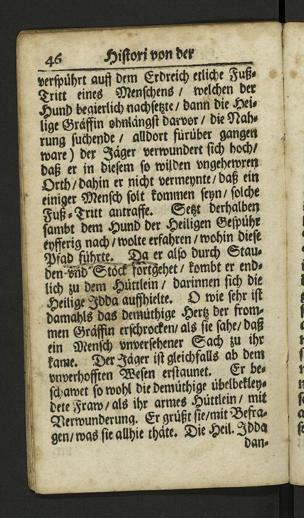 46 Histori von der
verspührt auff dem Erdreich etliche Fuß-
Tritt eines Menschens / welchen der
Hund begierlich nachsetzte / dann die Hei-
lige Gräffin ohnlängst darvor / die Nah-
rung suchende / alldort fürüber gangen
ware) der Jäger verwundert sich hoch /
daß er in diesem so wilden ungehewren
Orth / dahin er nicht vermeynte / daß ein
einiger Mensch solt kommen seyn / solche
Fuß-Tritt antraffe. Setzt derhalben
sambt dem Hund der Heiligen Gespühr
eyfferig nach / wolte erfahren / wohin diese
Pfad führte. Da er also durch Stau-
den vnd Stöck fortgehet / kombt er end-
lich zu dem Hüttlein / darinnen sich die
Heilige Idda auffhielte. O wie sehr ist
damahls das demüthige Hertz der from-
men Gräffin erschrocken / als sie sahe / daß
ein Mensch vnversehener Sach zu ihr
kame. Der Jäger ist gleichfalls ab dem
vnverhofften Wesen erstaunet. Er be-
schawet so wohl die demüthige übelbekley-
dete Fraw / als ihr armes Hüttlein / mit
Verwunderung. Er grüßt sie / mit Befra-
gen / was sie allhie thäte. Die Heil. Idda
dan-